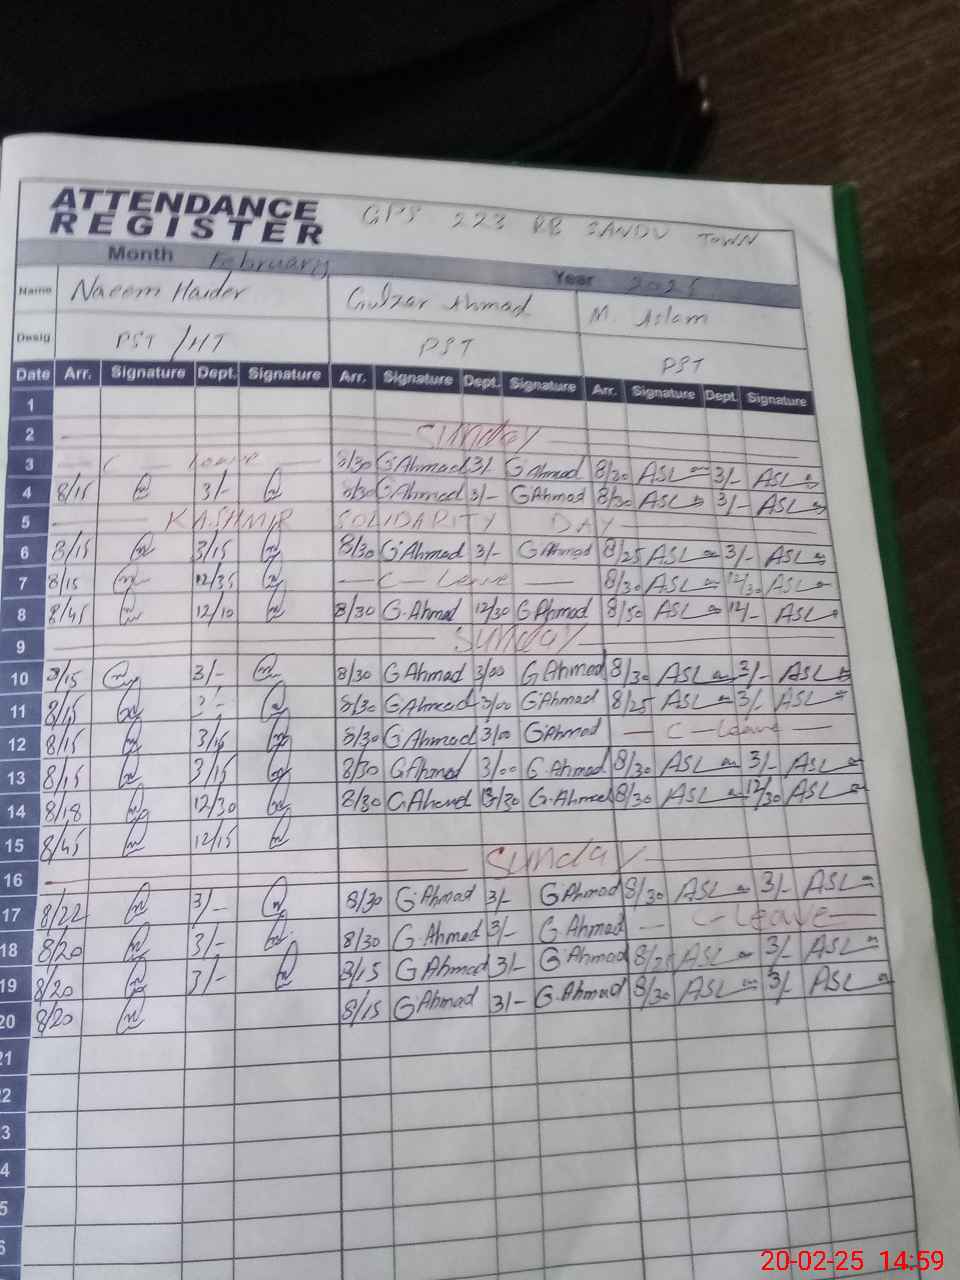 ATTENDANCE REGISTER GPS 223 RB SANDU TOWN
Month February Year 2025
Name Naeem Haider Gulzar Ahmad M. Aslam
Desig. PST/HT PST PST
Date Arr. Signature Dept. Signature Arr. Signature Dept. Signature Arr. Signature Dept. Signature
1
2 Sunday
3 C Leave 8/30 G Ahmad 3/- G Ahmad 8/30 ASL 3/- ASL
4 8/15 3/- 8/30 G Ahmad 3/- G Ahmad 8/30 ASL 3/- ASL
5 KASHMIR SOLIDARITY DAY
6 8/15 3/15 8/30 G Ahmad 3/- G Ahmad 8/25 ASL 3/- ASL
7 8/15 12/35 C-Leave 8/30 ASL 12/30 ASL
8 8/45 12/10 8/30 G.Ahmad 12/30 G Ahmad 8/50 ASL 12/- ASL
9 Sunday
10 8/15 3/- 8/30 G Ahmad 3/00 G Ahmad 8/30 ASL 3/- ASL
11 8/15 8/30 G Ahmad 3/00 G Ahmad 8/25 ASL 3/- ASL
12 8/15 3/15 8/30 G Ahmad 3/00 G Ahmad C-Leave
13 8/15 3/15 8/30 G Ahmad 3/00 G. Ahmad 8/30 ASL 3/- ASL
14 8/18 12/30 8/30 G Ahmad G.Ahmad 8/30 ASL 12/30 ASL
15 8/45 12/15
16 Sunday
17 8/22 3/- 8/30 G Ahmad 3/- G Ahmad 8/30 ASL 3/- ASL
18 8/20 3/- 8/30 G. Ahmad 3/- G. Ahmad C-Leave
19 8/20 3/- 8/15 G Ahmad 3/- G Ahmad 8/25 ASL 3/- ASL
20 8/20 8/15 G Ahmad 3/- G. Ahmad 8/30 ASL 3/- ASL
21
2
3
4
5
6
20-02-25 14:59